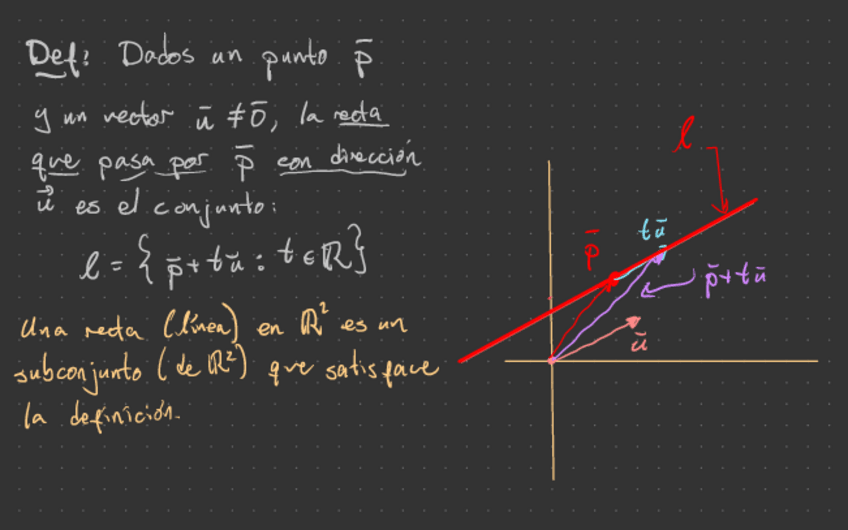 Def: Dados un punto p̄
y un vector ū ≠ 0̄, la recta
que pasa por p̄ con dirección
u⃗ es el conjunto:
ℓ = { p̄ + tū : t ∈ ℝ }
Una recta (línea) en ℝ² es un
subconjunto (de ℝ²) que satisface
la definición.
ℓ
tū
p̄
p̄ + tū
ū